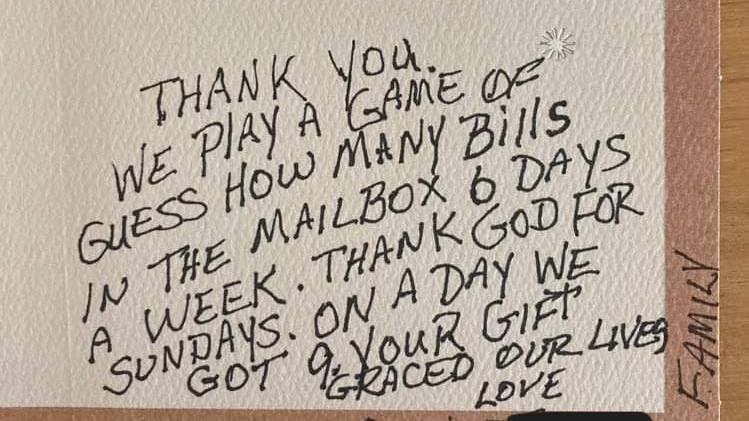 THANK YOU.
WE PLAY A GAME OF
GUESS HOW MANY Bills
IN THE MAILBOX 6 DAYS
A WEEK. THANK GOD FOR
SUNDAYS. ON A DAY WE
GOT 9, YOUR GIFT
GRACED OUR LIVES
LOVE
FAMILY